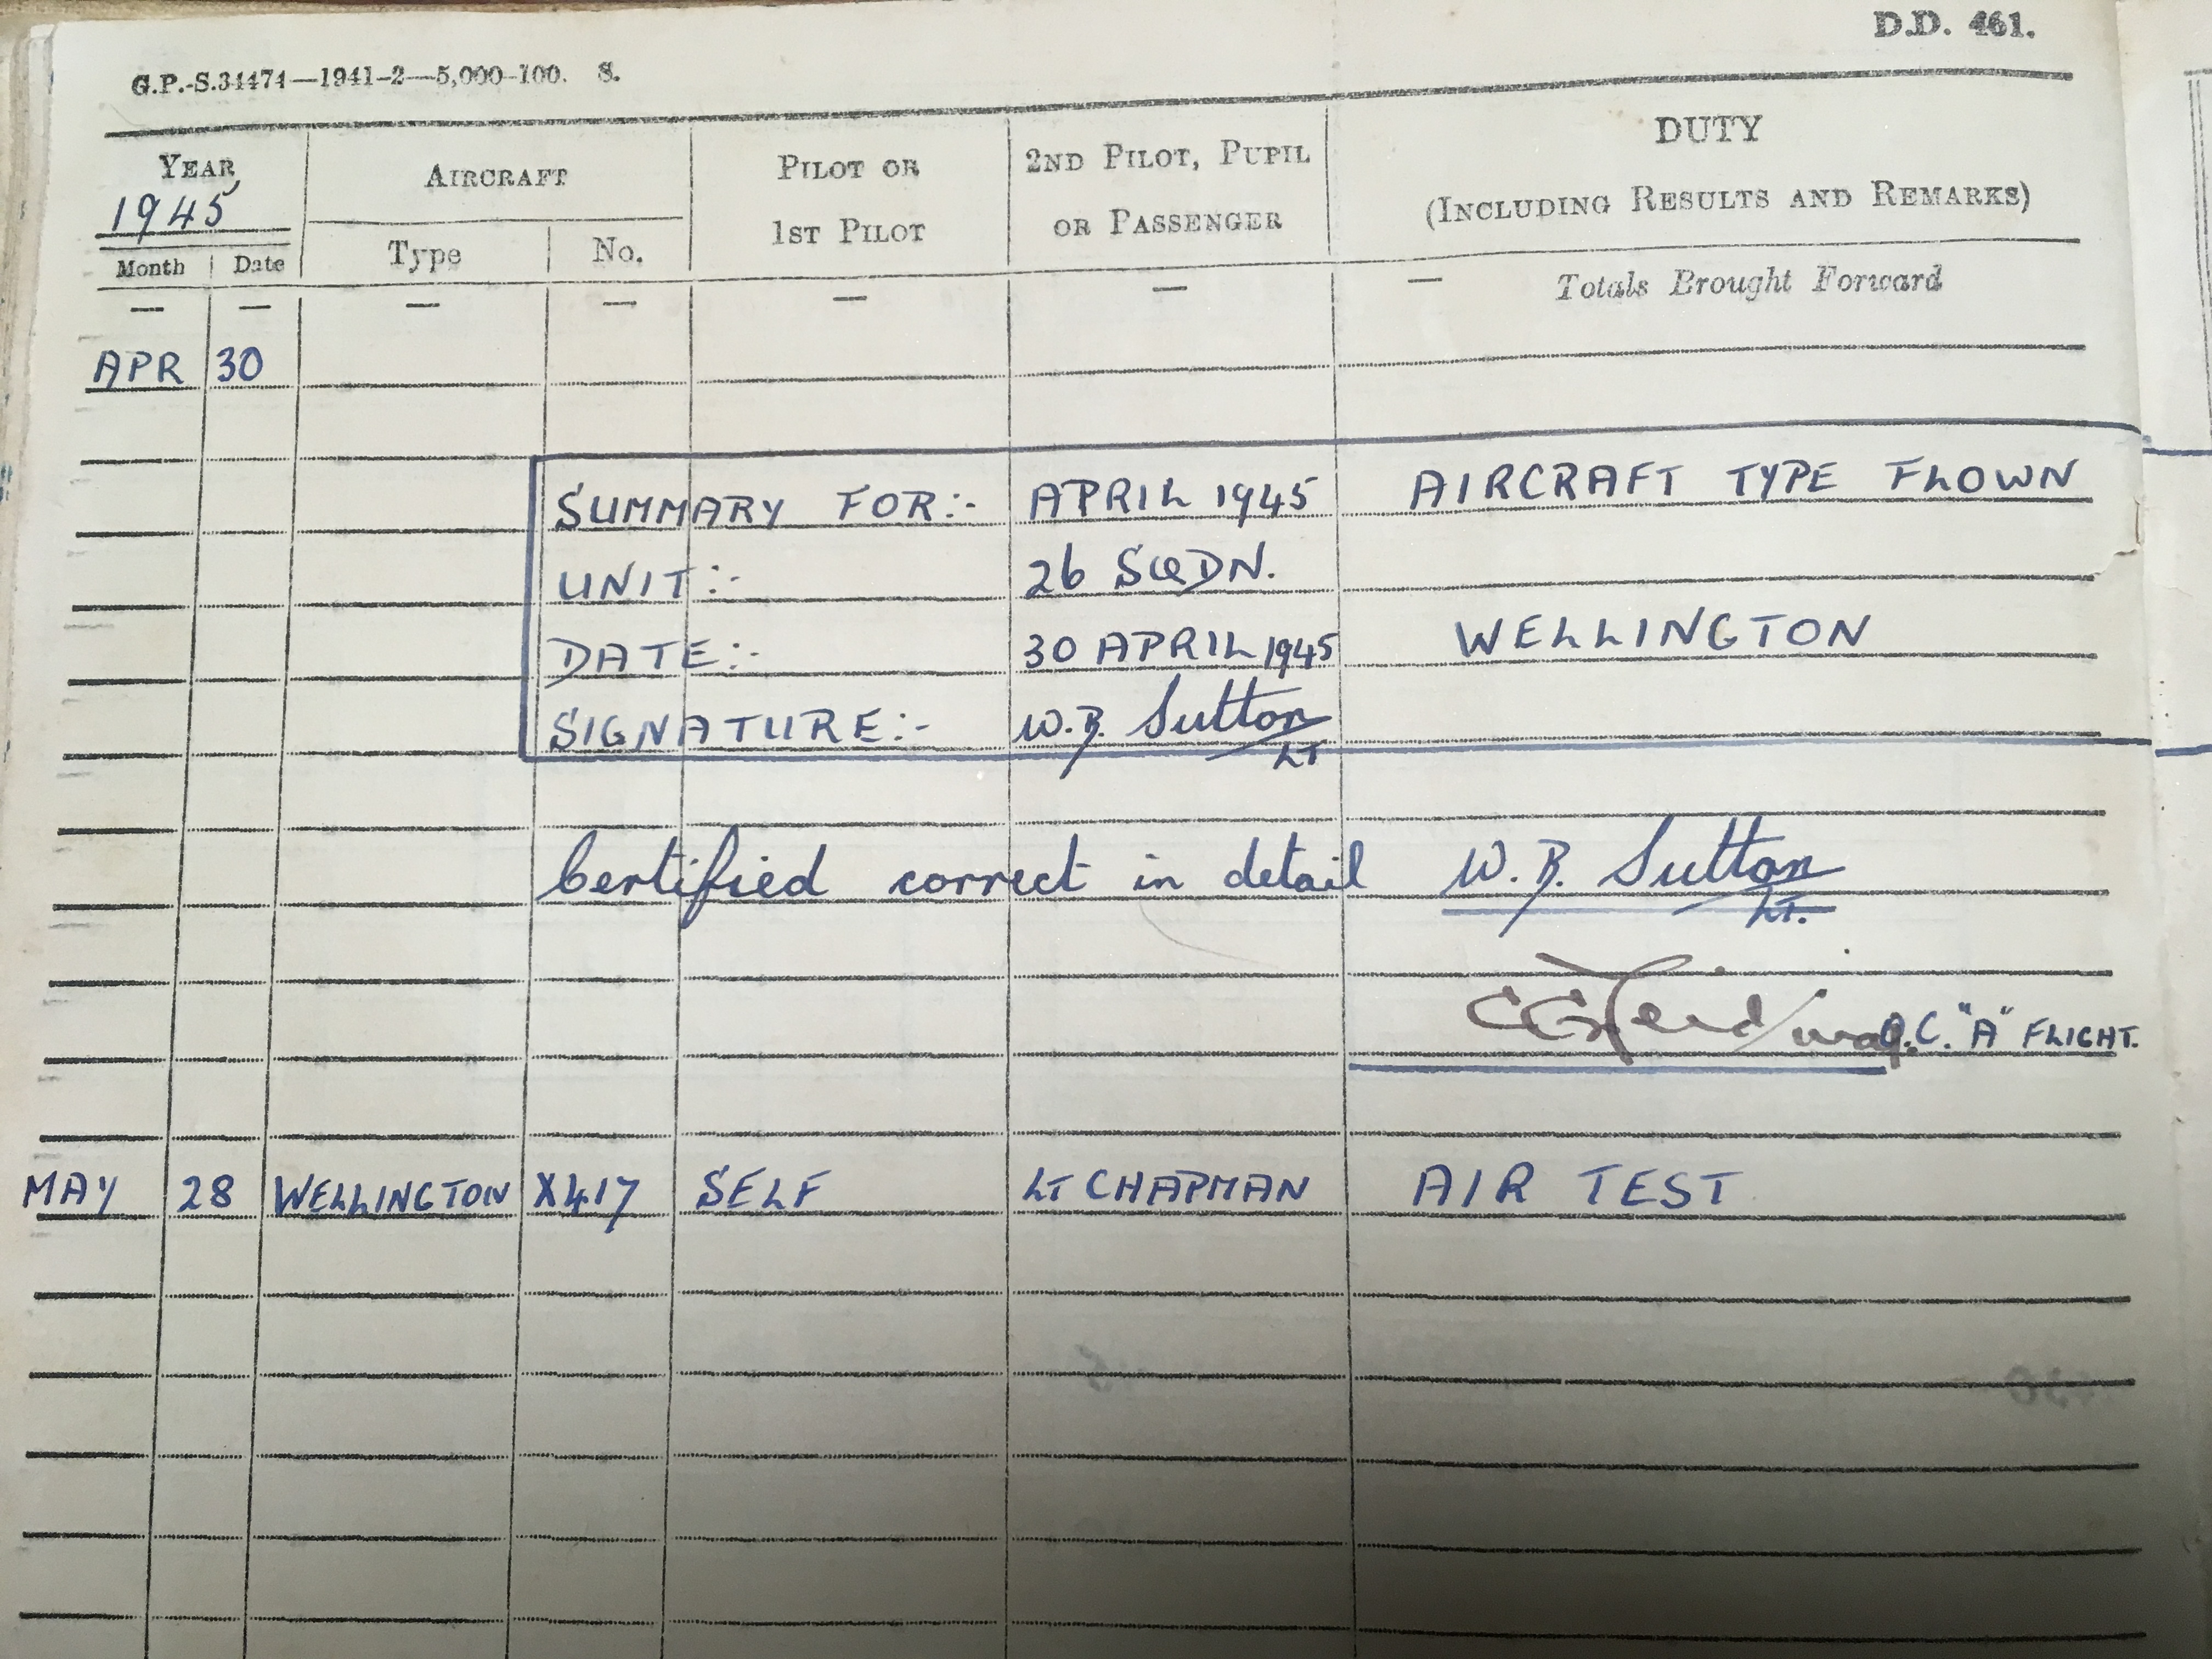 D.D. 461.
G.P.-S.34474—1941-2—5,000-100. S.
YEAR AIRCRAFT PILOT OR 2ND PILOT, PUPIL DUTY
1945 1ST PILOT OR PASSENGER (INCLUDING RESULTS AND REMARKS)
Month Date Type No.
— — — — — — — Totals Brought Forward
APR 30
SUMMARY FOR:- APRIL 1945 AIRCRAFT TYPE FLOWN
UNIT:- 26 SQDN.
DATE:- 30 APRIL 1945 WELLINGTON
SIGNATURE:- W.B. Sutton
LT
Certified correct in detail W.B. Sutton
LT.
O.C. "A" FLIGHT.
MAY 28 WELLINGTON X417 SELF LT CHAPMAN AIR TEST